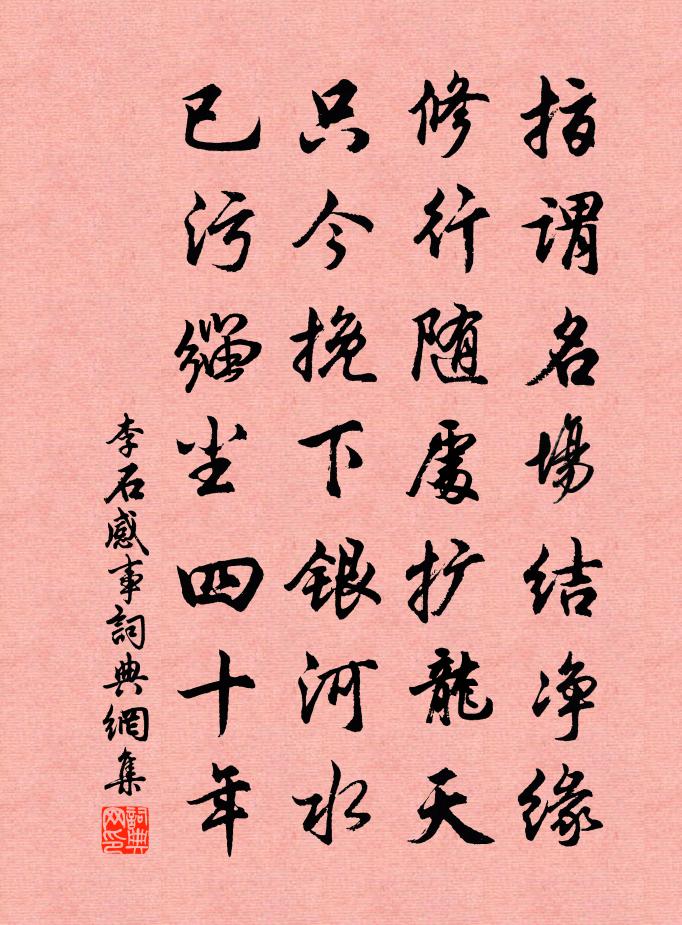 指谓名場结净缘
修行随處扩龍天
只今挽下银河水
已污缁尘四十年
李石感事詞典網集
詞典网印